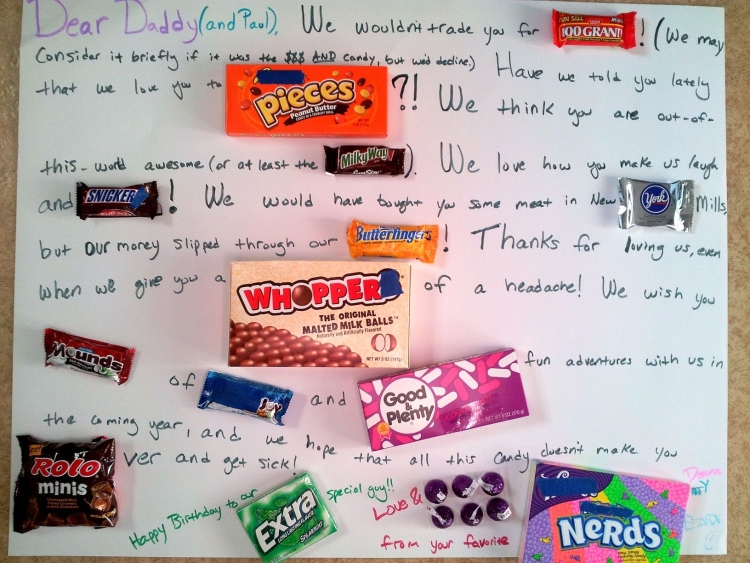 Dear Daddy (and Paul), We wouldn't trade you for FUN SIZE 100 GRAND! (We may
Consider it briefly if it was the $$$ AND candy, but we'd decline.) Have we told you lately
that we love you to Pieces Peanut Butter ?! We think you are out-of-
this-world awesome (or at least the MilkyWay Fun Size). We love how you make us laugh
and SNICKER! We would have bought you some meat in New York Mills,
but our money slipped through our Butterfingers! Thanks for loving us, even
when we give you a WHOPPER THE ORIGINAL MALTED MILK BALLS Naturally and Artificially Flavored NET WT 5 OZ (141g) of a headache! We wish you
Mounds of Joy and Good & Plenty fun adventures with us in
the coming year, and we hope that all this candy doesn't make you
ROLO minis ver and get sick!
Happy Birthday to our Extra SPEARMINT special guy!! Love &
from your favorite NeRds